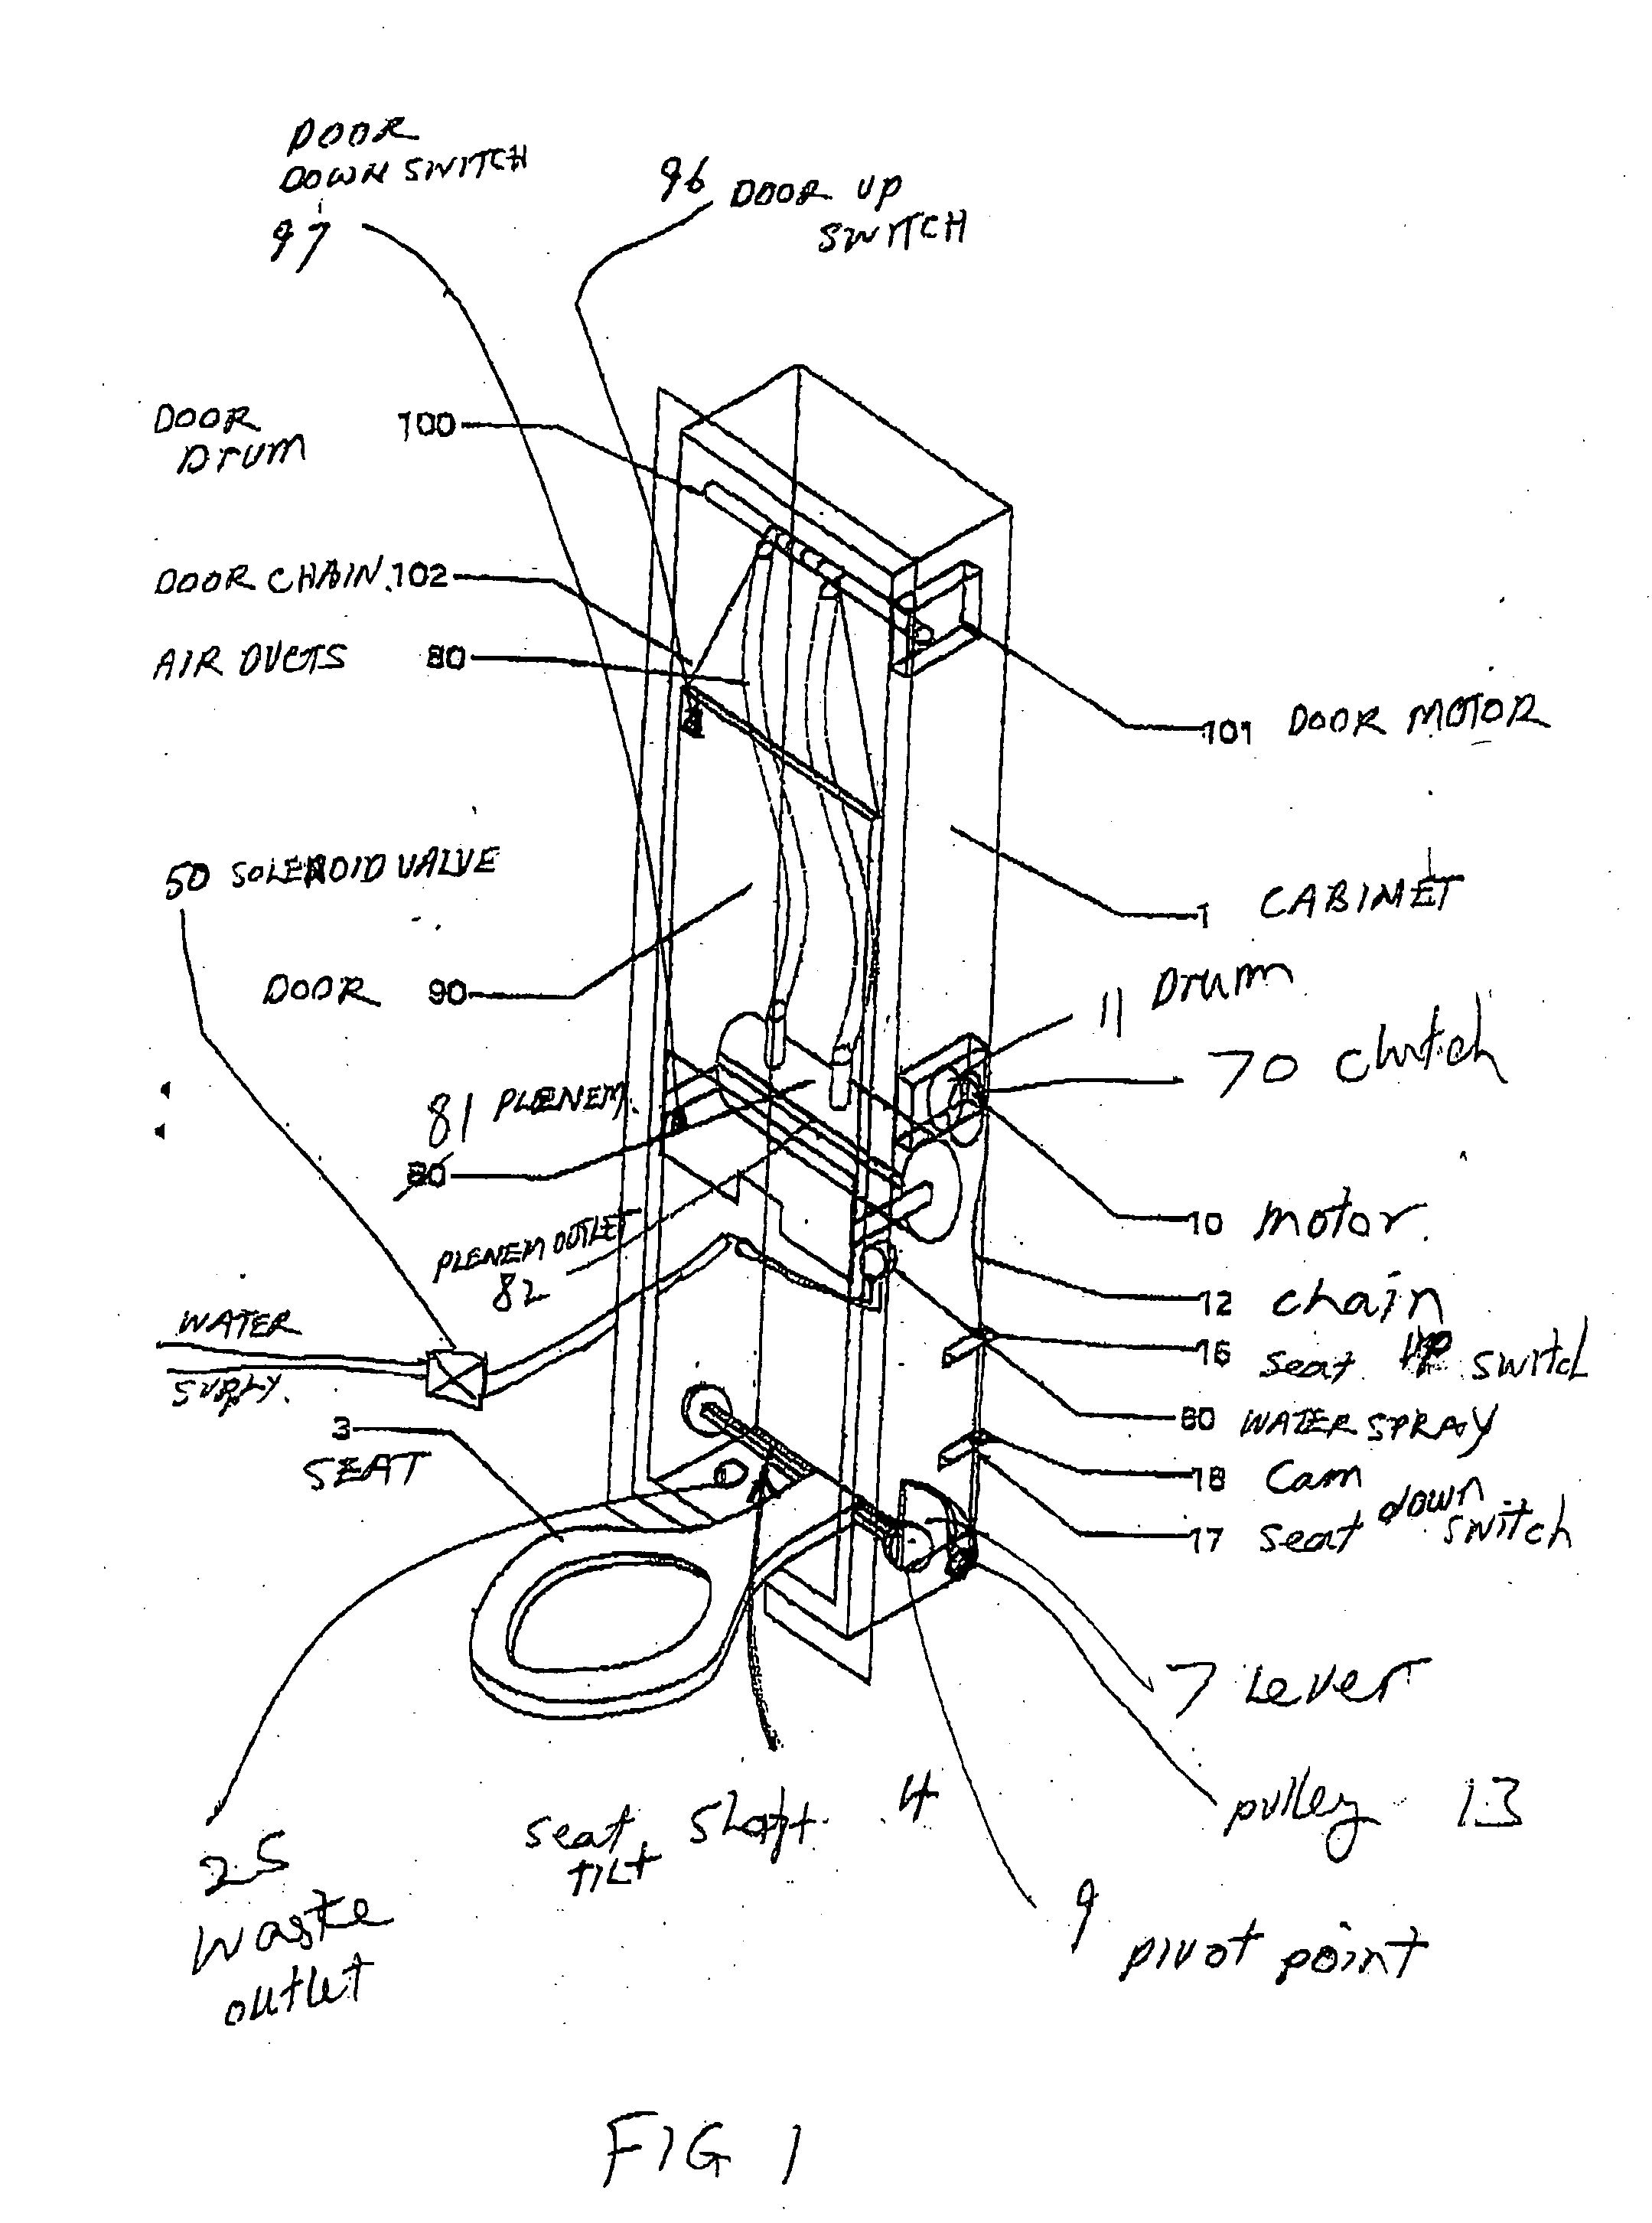 DOOR
DOWN SWITCH
97
96 DOOR UP
SWITCH
DOOR 100
DRUM
DOOR CHAIN. 102
AIR DUCTS 80
101 DOOR MOTOR
50 SOLENOID VALVE
1 CABINET
DOOR 90
11 Drum
70 Clutch
81 PLENEM.
80
10 motor.
PLENEM OUTLET
82
12 chain
WATER
SUPLY.
16 seat UP switch
60 WATER SPRAY
3
SEAT
18 Cam
17 seat down
switch
7 Lever
pulley 13
seat shaft. 4
TILT
25
waste
outlet
9
pivot point
FIG 1